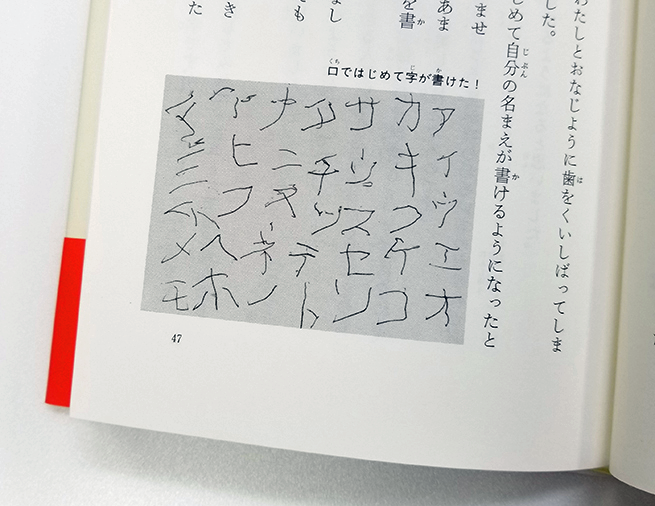 わたしとおなじように歯をくいしばってしま
は
した。
じめて自分の名まえが書けるようになったと
じぶん
か
ませ
あま
を書
か
し
ても
き
た
口ではじめて字が書けた!
くち
じ
か
アイウエオ
カキクケコ
サシスセソ
タチツテト
ナニヌネノ
ハヒフヘホ
マミムメモ
47